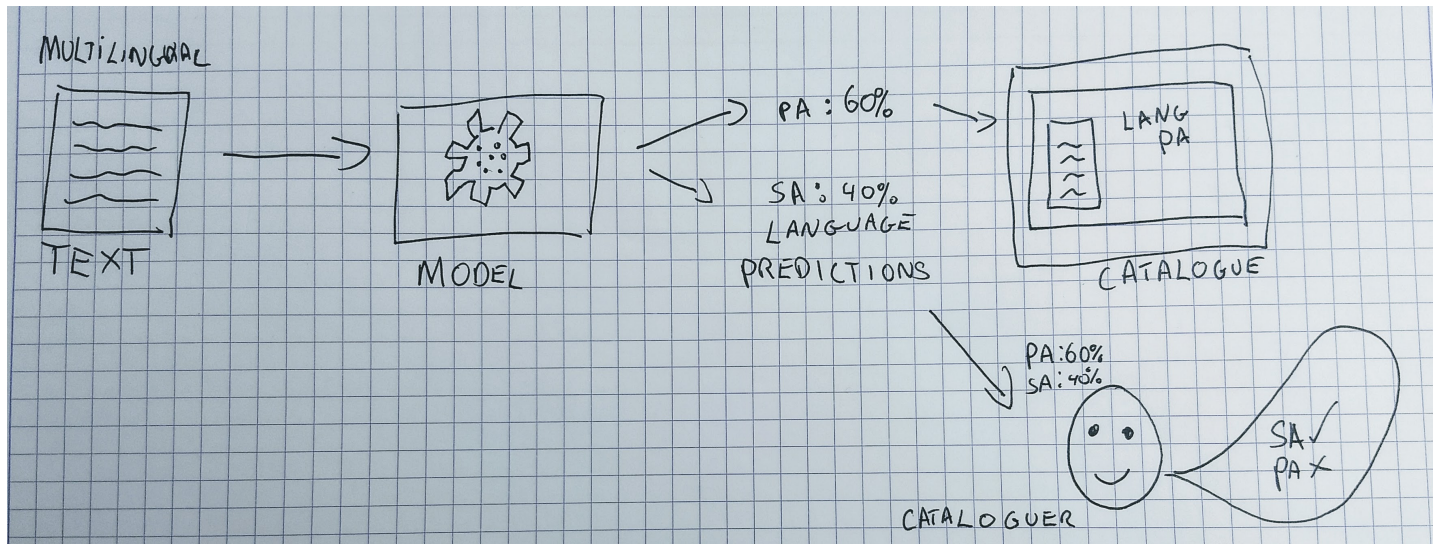 MULTILINGUAL
TEXT
MODEL
PA : 60%
SA : 40%
LANGUAGE
PREDICTIONS
LANG
PA
CATALOGUE
PA:60%
SA:40%
CATALOGUER
SA ✓
PA ×